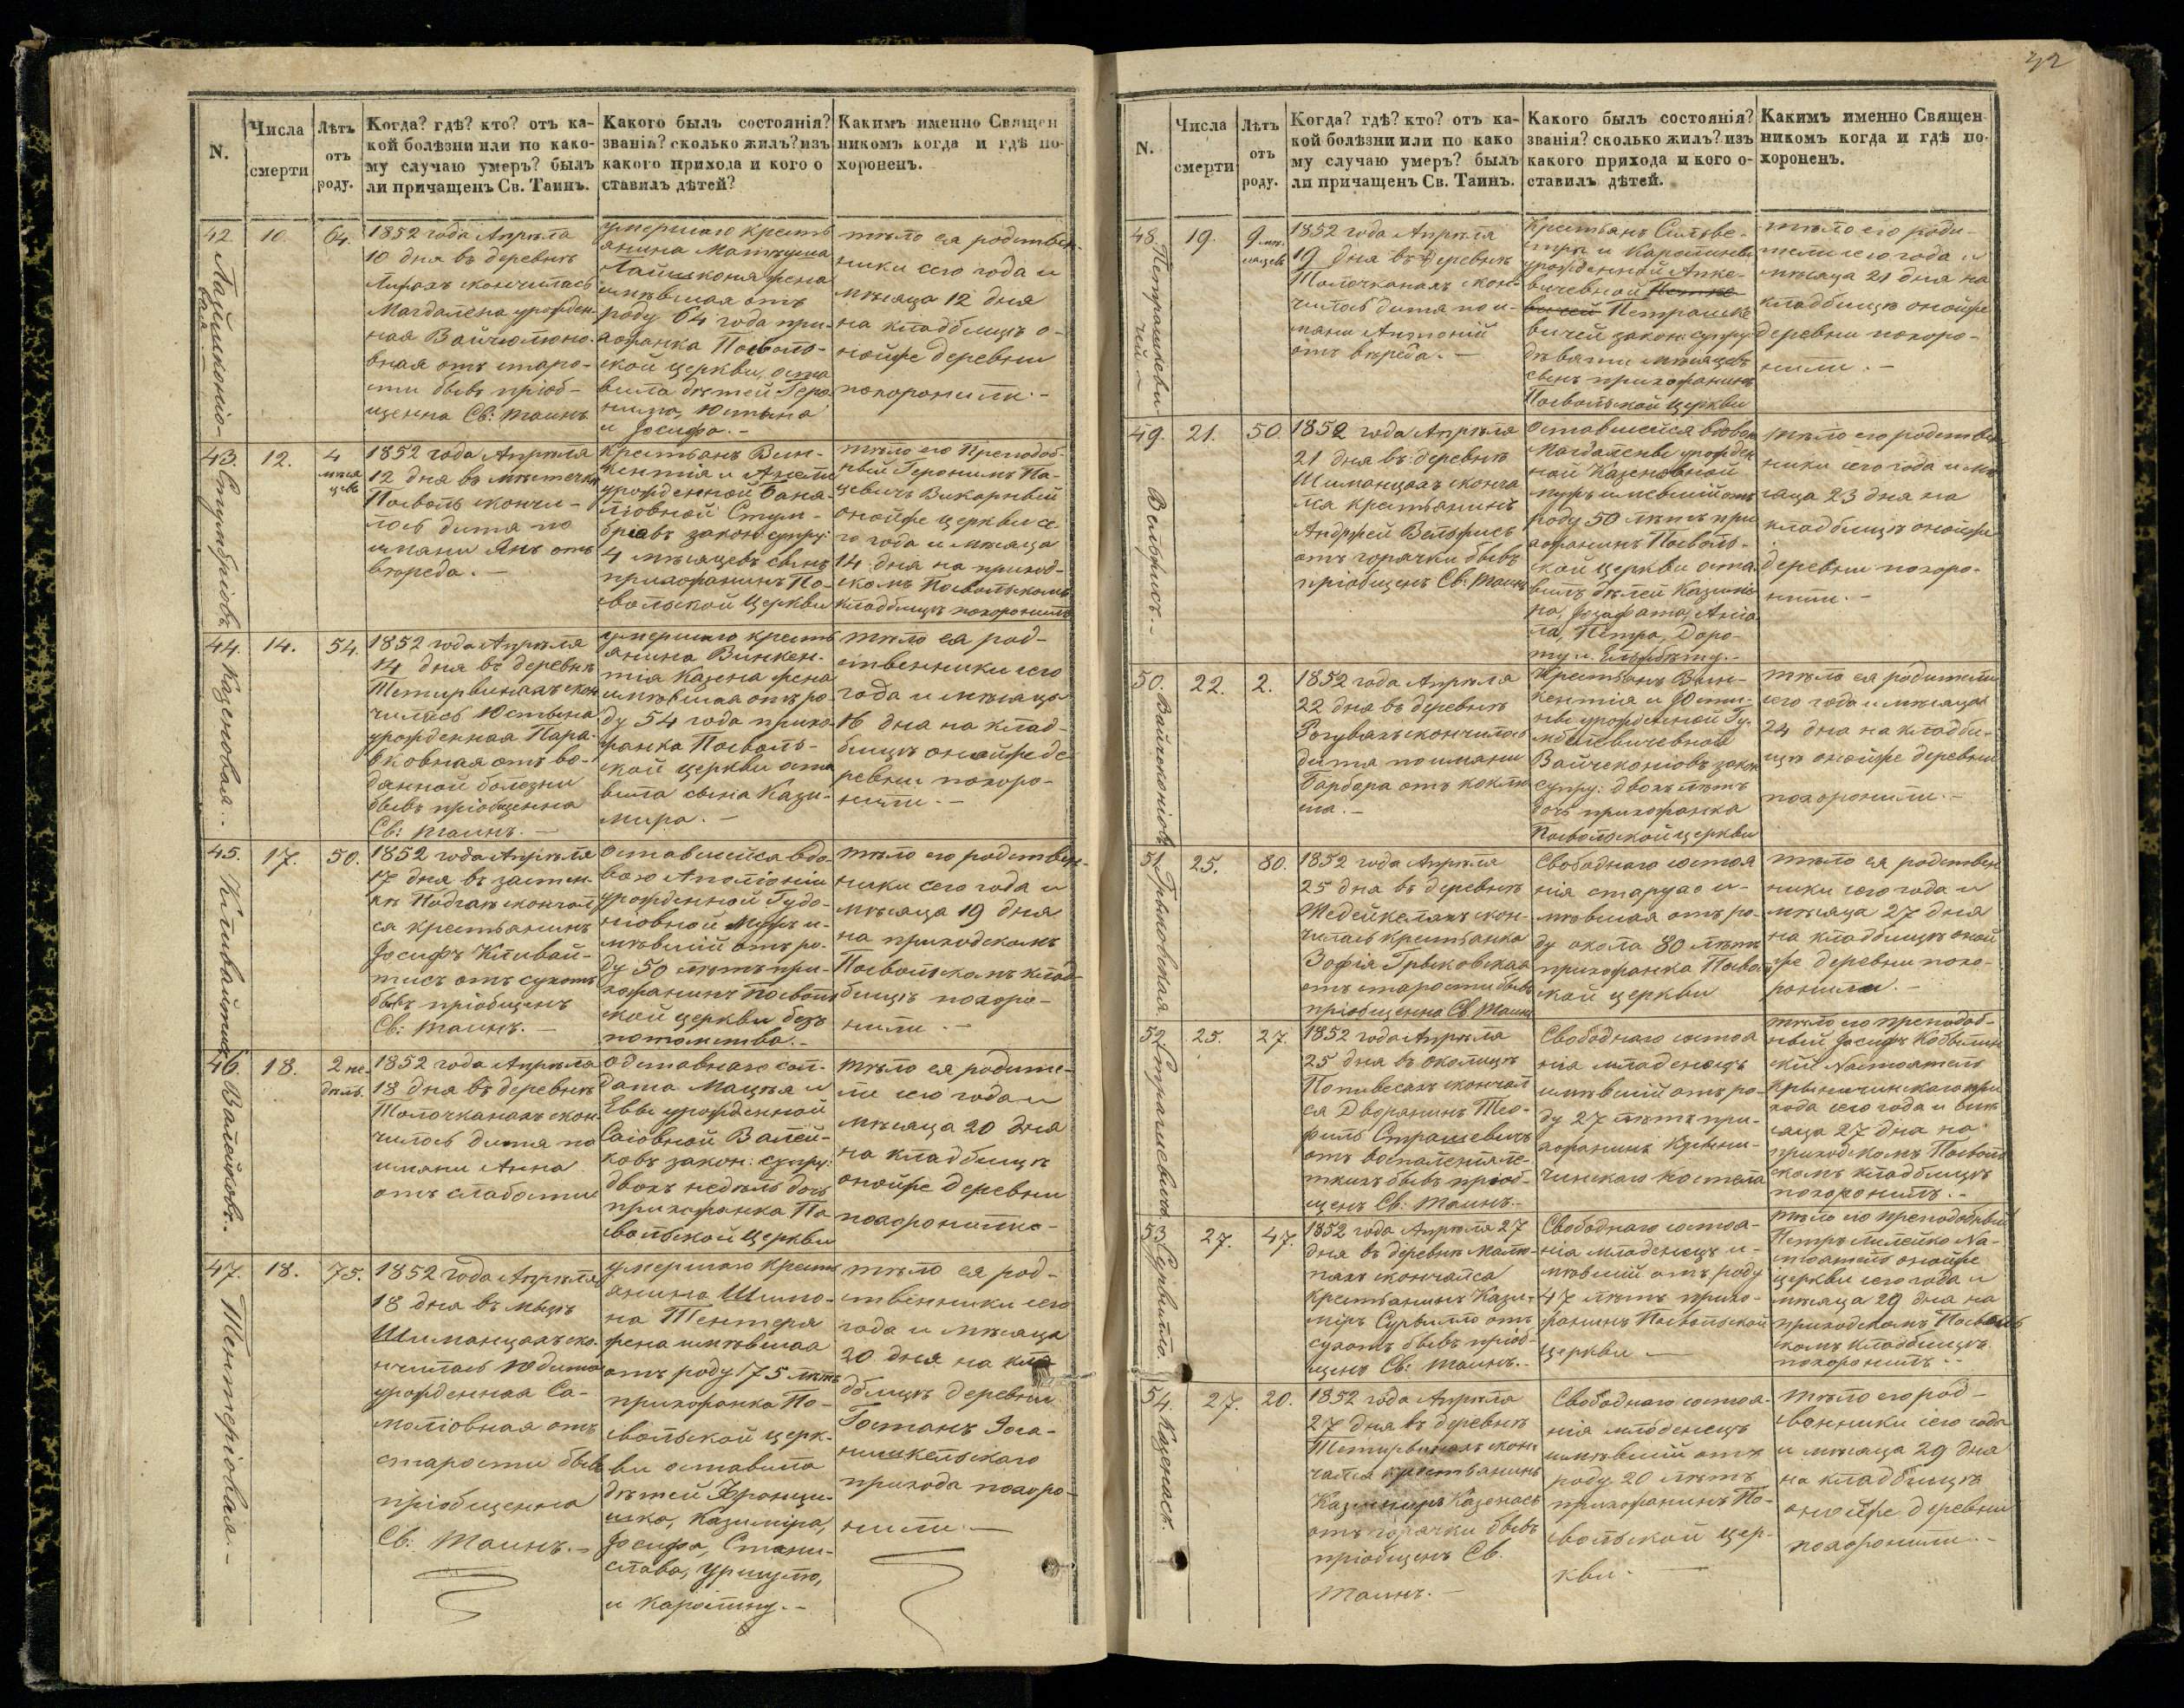 32
N.
Числа
смерти
Лѣтъ
отъ
роду.
Когда? гдѣ? кто? отъ ка-
кой болѣзни или по како-
му случаю умеръ? былъ
ли причащенъ Св. Таинъ.
Какого былъ состоянія?
званія? сколько жилъ? изъ
какого прихода и кого о
ставилъ дѣтей?
Какимъ именно Священ
никомъ когда и гдѣ по-
хороненъ.
42.
10.
64.
1852 года Апрѣля
10 дня въ деревнѣ
скончилась
Магдалена урожден-
ная
вная отъ старо-
сти бывъ пріоб-
щенна Св: Таинъ
умершаго кресть
янина Матеуша
жена
имѣвшая отъ
роду 64 года при-
хожанка Посволь-
ской церкви оста
вила дѣтей Геро-
нима, Юстына
и Іосифа. -
тѣло ея родствен-
ники сего года и
мѣсяца 12 дня
на кладбищѣ о-
нойже деревни
похоронили. -
43.
12.
4
мѣся
цевъ
1852 года Апрѣля
12 дня въ мѣстечкѣ
Посволь скончи-
лось дитя по
имени Янъ отъ
вереда. -
Крестьянъ Вин-
кентія и Анели
урожденной Баня-
ліовной Стум-
бріовъ закон: супру:
4 мѣсяцевъ сынъ
прихожанинъ По-
свольской Церкви
тѣло его Преподоб-
ный Геронимъ На-
цевичъ Викарный
онойже церкви се-
го года и мѣсяца
14 дня на приход-
скомъ Посвольскомъ
кладбищѣ похоронилъ
44.
Казеновая. -
14.
54.
1852 года Апрѣля
14 дня въ деревнѣ
Тетирвинахъ скон
чилась Юстына
урожденная Пара-
ковная отъ во-
данной болезни
бывъ пріобщенна
Св: Таинъ. -
умершаго кресть
янина Винкен-
тія Казена жена
имѣвшая отъ ро-
ду 54 года прихо-
жанка Посволь-
ской церкви оста
вила сына Кази-
мира. -
тѣло ея род-
ственники сего
года и мѣсяца
16 дня на клад-
бищѣ онойже де
ревни похоро-
нили. -
45.
Кливайтисъ.
17.
50.
1852 года Апрѣля
17 дня въ застен-
кѣ скончал
ся крестьянинъ
Іосифъ Кливай-
тисъ отъ сухотъ
бывъ пріобщенъ
Св: Таинъ. -
Оставшейся вдо
вою Аполіоніи
урожденной Гудо-
ніовной мужъ и-
мѣвшій отъ ро-
ду 50 лѣтъ при-
хожанинъ Посволь
ской церкви безъ
потомства. -
тѣло его родствен-
ники сего года и
мѣсяца 19 дня
на приходскомъ
Посвольскомъ клад
бищѣ похоро-
нили. -
46.
Валейковъ. -
18.
2 не-
дѣль.
1852 года Апрѣля
18 дня въ деревнѣ
Толочканахъ скон-
чилось дитя по
имени Анна
отъ слабости
Отставнаго сол-
дата Мацѣя и
Еввы урожденной
Валей-
ковъ закон: супру:
двохъ недѣль дочь
прихожанка По
свольской Церкви
тѣло ея родите-
ли сего года и
мѣсяца 20 дня
на кладбищѣ
онойже деревни
похоронили -
47.
Тентеріовая. -
18.
75.
1852 года Апрѣля
18 дня въ мызѣ
Шиманцахъ ско-
нчилась Юдита
урожденная Са-
моліовная отъ
старости бывъ
пріобщенна
Св: Таинъ. -
умершаго кресть
янина Шимо-
на Тентеря
жена имѣвшая
отъ роду 75 лѣтъ
прихожанка По-
свольской церк-
ви оставила
дѣтей Францы-
шка, Казиміра,
Іосифа, Стани-
слава, Уршулю,
и Каролину. -
тѣло ея род-
ственники сего
года и мѣсяца
20 дня на кла
дбищѣ деревни
Іога-
нишкельскаго
прихода похоро-
нили -
N.
Числа
смерти
Лѣтъ
отъ
роду.
Когда? гдѣ? кто? отъ ка-
кой болѣзни или по како
му случаю умеръ? былъ
ли причащенъ Св. Таинъ.
Какого былъ состоянія?
званія? сколько жилъ? изъ
какого прихода и кого о-
ставилъ дѣтей.
Какимъ именно Священ-
никомъ когда и гдѣ по-
хороненъ.
48.
Петрашкеви-
чей -
19.
9 мѣ-
сяцевъ
1852 года Апрѣля
19 дня въ деревнѣ
Толочканахъ скон-
чилось дитя по и-
мени Антоній
отъ вереда. -
Крестьянъ Сильве-
стра и Каролины
урожденной Анке-
вичевной
Петрашке
вичей закон: супру:
девяти мѣсяцевъ
сынъ прихожанинъ
Посвольской Церкви
тѣло его роди-
тели сего года и
мѣсяца 21 дня на
кладбищѣ онойже
деревни похоро-
нили. -
49.
Вельжисъ. -
21.
50
1852 года Апрѣля
21 дня въ деревнѣ
Шиманцахъ сконча
лся крестьянинъ
Андржей Велжисъ
отъ горячки бывъ
пріобщенъ Св: Таинъ
Оставшейся вдовою
Магдалены урожден
ной Казеновной
мужъ имевшій отъ
роду 50 лѣтъ при
хожанинъ Посволь-
ской церкви оста-
вилъ дѣтей Казимі-
ра, Іозафата,
Петра, Доро-
ту и Ельжбету. -
тѣло его родствен
ники сего года и мѣ
сяца 23 дня на
кладбищѣ онойже
деревни похоро-
нили. -
50.
Вайчеконіовъ
22.
2.
1852 года Апрѣля
22 дня въ деревнѣ
Рогувахъ скончилось
дитя по имени
Барбара отъ коклю
ша. -
Крестьянъ Вин-
кентія и Юсти-
ны урожденной Гу-
Вайчеконіовъ закон
супру: двохъ лѣтъ
дочь прихожанка
Посвольской церкви
тѣло ея родители
сего года и мѣсяца
24 дня на кладби-
щѣ онойже деревни
похоронили. -
51.
25.
80.
1852 года Апрѣля
25 дня въ деревнѣ
Жедейкеляхъ скон-
чилась крестьянка
Зофія Грыковская
отъ старости бывъ
пріобщенна Св Таинъ
Свободнаго состоя
нія старуха и-
мѣвшая отъ ро-
ду окола 80 лѣтъ
прихожанка Посволь
ской церкви
тѣло ея родствен
ники сего года и
мѣсяца 27 дня
на кладбищѣ оной
же деревни похо-
ронили. -
52.
Страшевичъ
25.
27.
1852 года Апрѣля
25 дня въ околицѣ
Попивесахъ скончал
ся Дворянинъ Тео-
филь Страшевичъ
отъ воспаленія ле-
гкихъ бывъ пріоб-
щенъ Св: Таинъ. -
Свободнаго состоя
нія младенецъ
имѣвшій отъ ро-
ду 27 лѣтъ при-
хожанинъ Крыни-
чинскаго костела
тѣло его преподоб-
ный Іосифъ
скій Настоятель
Крыничинскаго при
хода сего года и мѣ-
сяца 27 дня на
приходскомъ Посволь
скомъ кладбищѣ
похоронилъ. -
53.
Сурвилло.
27.
47.
1852 года Апрѣля 27
дня въ деревнѣ
скончался
крестьянинъ Кази-
міръ Сурвилло отъ
сухотъ бывъ пріоб-
щенъ Св: Таинъ. -
Свободнаго состоя-
нія младенецъ и-
мѣвшій отъ роду
47 лѣтъ прихо-
жанинъ Посвольской
церкви -
тѣло его преподобный
Петръ Милейко На-
стоятель онойже
церкви сего года и
мѣсяца 29 дня на
приходскомъ Посволь
скомъ кладбищѣ
похоронилъ. -
54.
Казенасъ.
27.
20.
1852 года Апрѣля
27 дня въ деревнѣ
Тетирвинахъ скон
чался крестьянинъ
Казимиръ Казенасъ
отъ горячки бывъ
пріобщенъ Св.
Таинъ. -
Свободнаго состоя-
нія младенецъ
имѣвшій отъ
роду 20 лѣтъ
прихожанинъ По-
свольской цер-
кви. -
тѣло его род-
венники сего года
и мѣсяца 29 дня
на кладбищѣ
онойже деревни
похоронили. -